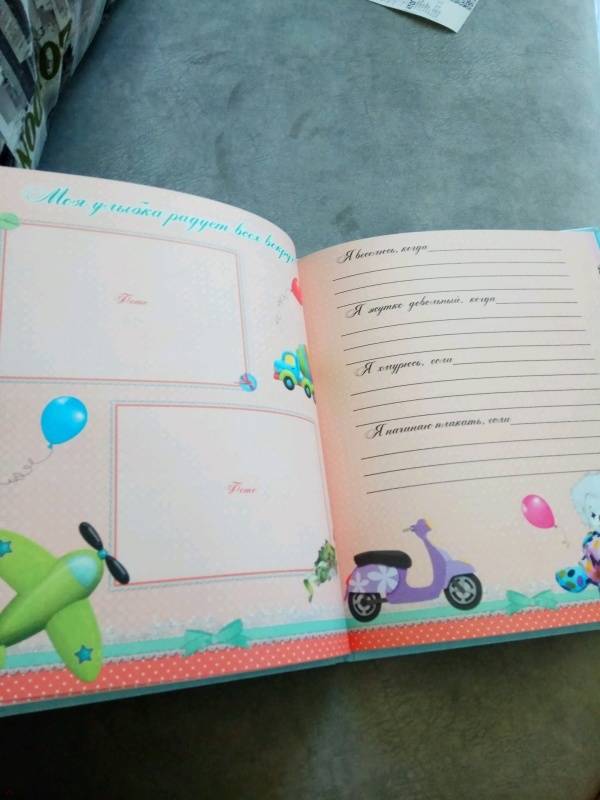 Моя улыбка радует всех вокруг
Фото
Фото
Я веселюсь, когда
Я жутко довольный, когда
Я хмурюсь, если
Я начинаю плакать, если